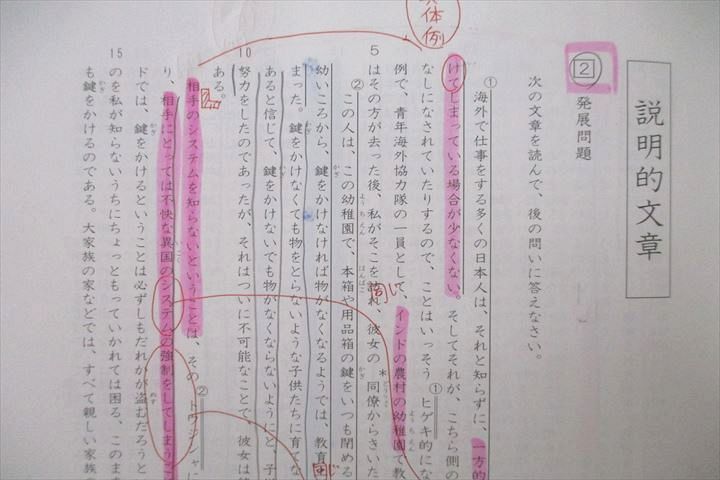 説明的文章
2
発展問題
次の文章を読んで、後の問いに答えなさい。
①
海外で仕事をする多くの日本人は、それと知らずに、一方的
けてしまっている場合が少なくない。そしてそれが、こちら側の
なしになされていたりするので、ことはいっそう ヒゲキ的にな
①
例で、青年海外協力隊の一員として、インドの農村の幼稚園で教
ようちえん
はその方が去った後、私がそこを訪れ、彼女の*同僚からきいた
5
②
この人は、この幼稚園で、本箱や用品箱の鍵をいつも閉める
ようちえん
ほんばこ
かぎ
幼いころから、鍵をかけなければ物がなくなるようでは、教育
まった。鍵をかけなくても物をとらないような子供たちに育てな
あると信じて、鍵をかけないでも物がなくならないようにと、子
努力をしたのであったが、それはついに不可能なことで、彼女は
10
ある。
相手のシステムを知らないということは、その
②
り、相手にとっては不快な異国のシステムの強制をしてしまうこ
ドでは、鍵をかけるということは必ずしもだれかが盗むだろうと
かぎ
ぬす
のを私が知らないうちにちょっともっていかれては困る、このまま
15
も鍵をかけるのである。大家族の家などでは、すべて親しい家族
かぎ
体例
同じ